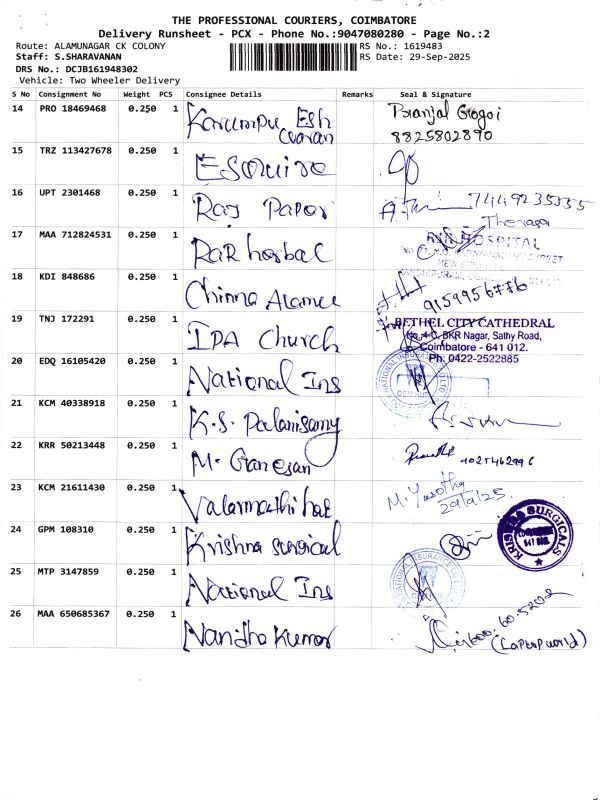 THE PROFESSIONAL COURIERS, COIMBATORE
Delivery Runsheet - PCX - Phone No.:9047080280 - Page No.:2
Route: ALAMUNAGAR CK COLONY RS No.: 1619483
Staff: S.SHARAVANAN RS Date: 29-Sep-2025
DRS No.: DCJB161948302
Vehicle: Two Wheeler Delivery
S No Consignment No Weight PCS Consignee Details Remarks Seal & Signature
14 PRO 18469468 0.250 1 Karumpu Esh Pranjal Gogoi
waran 8825802890
15 TRZ 113427678 0.250 1 ESquire
16 UPT 2301468 0.250 1 Raj Paper 7449235355
17 MAA 712824531 0.250 1 RaR herbal HOSPITAL
18 KDI 848686 0.250 1 Chinna 9159956776
19 TNJ 172291 0.250 1 IPA Church BETHEL CITY CATHEDRAL
BKR Nagar, Sathy Road,
Coimbatore - 641 012.
Ph: 0422-2522885
20 EDQ 16105420 0.250 1 National Ins
21 KCM 40338918 0.250 1 K.S. Palanisamy
22 KRR 50213448 0.250 1 M. Ganesan
23 KCM 21611430 0.250 1 Valarmathi M. Yasotha
29/9/25
24 GPM 108310 0.250 1 Krishna surgical KRISHNA SURGICALS
25 MTP 3147859 0.250 1 National Ins
26 MAA 650685367 0.250 1 Nandha Kumar
(Laptop world)